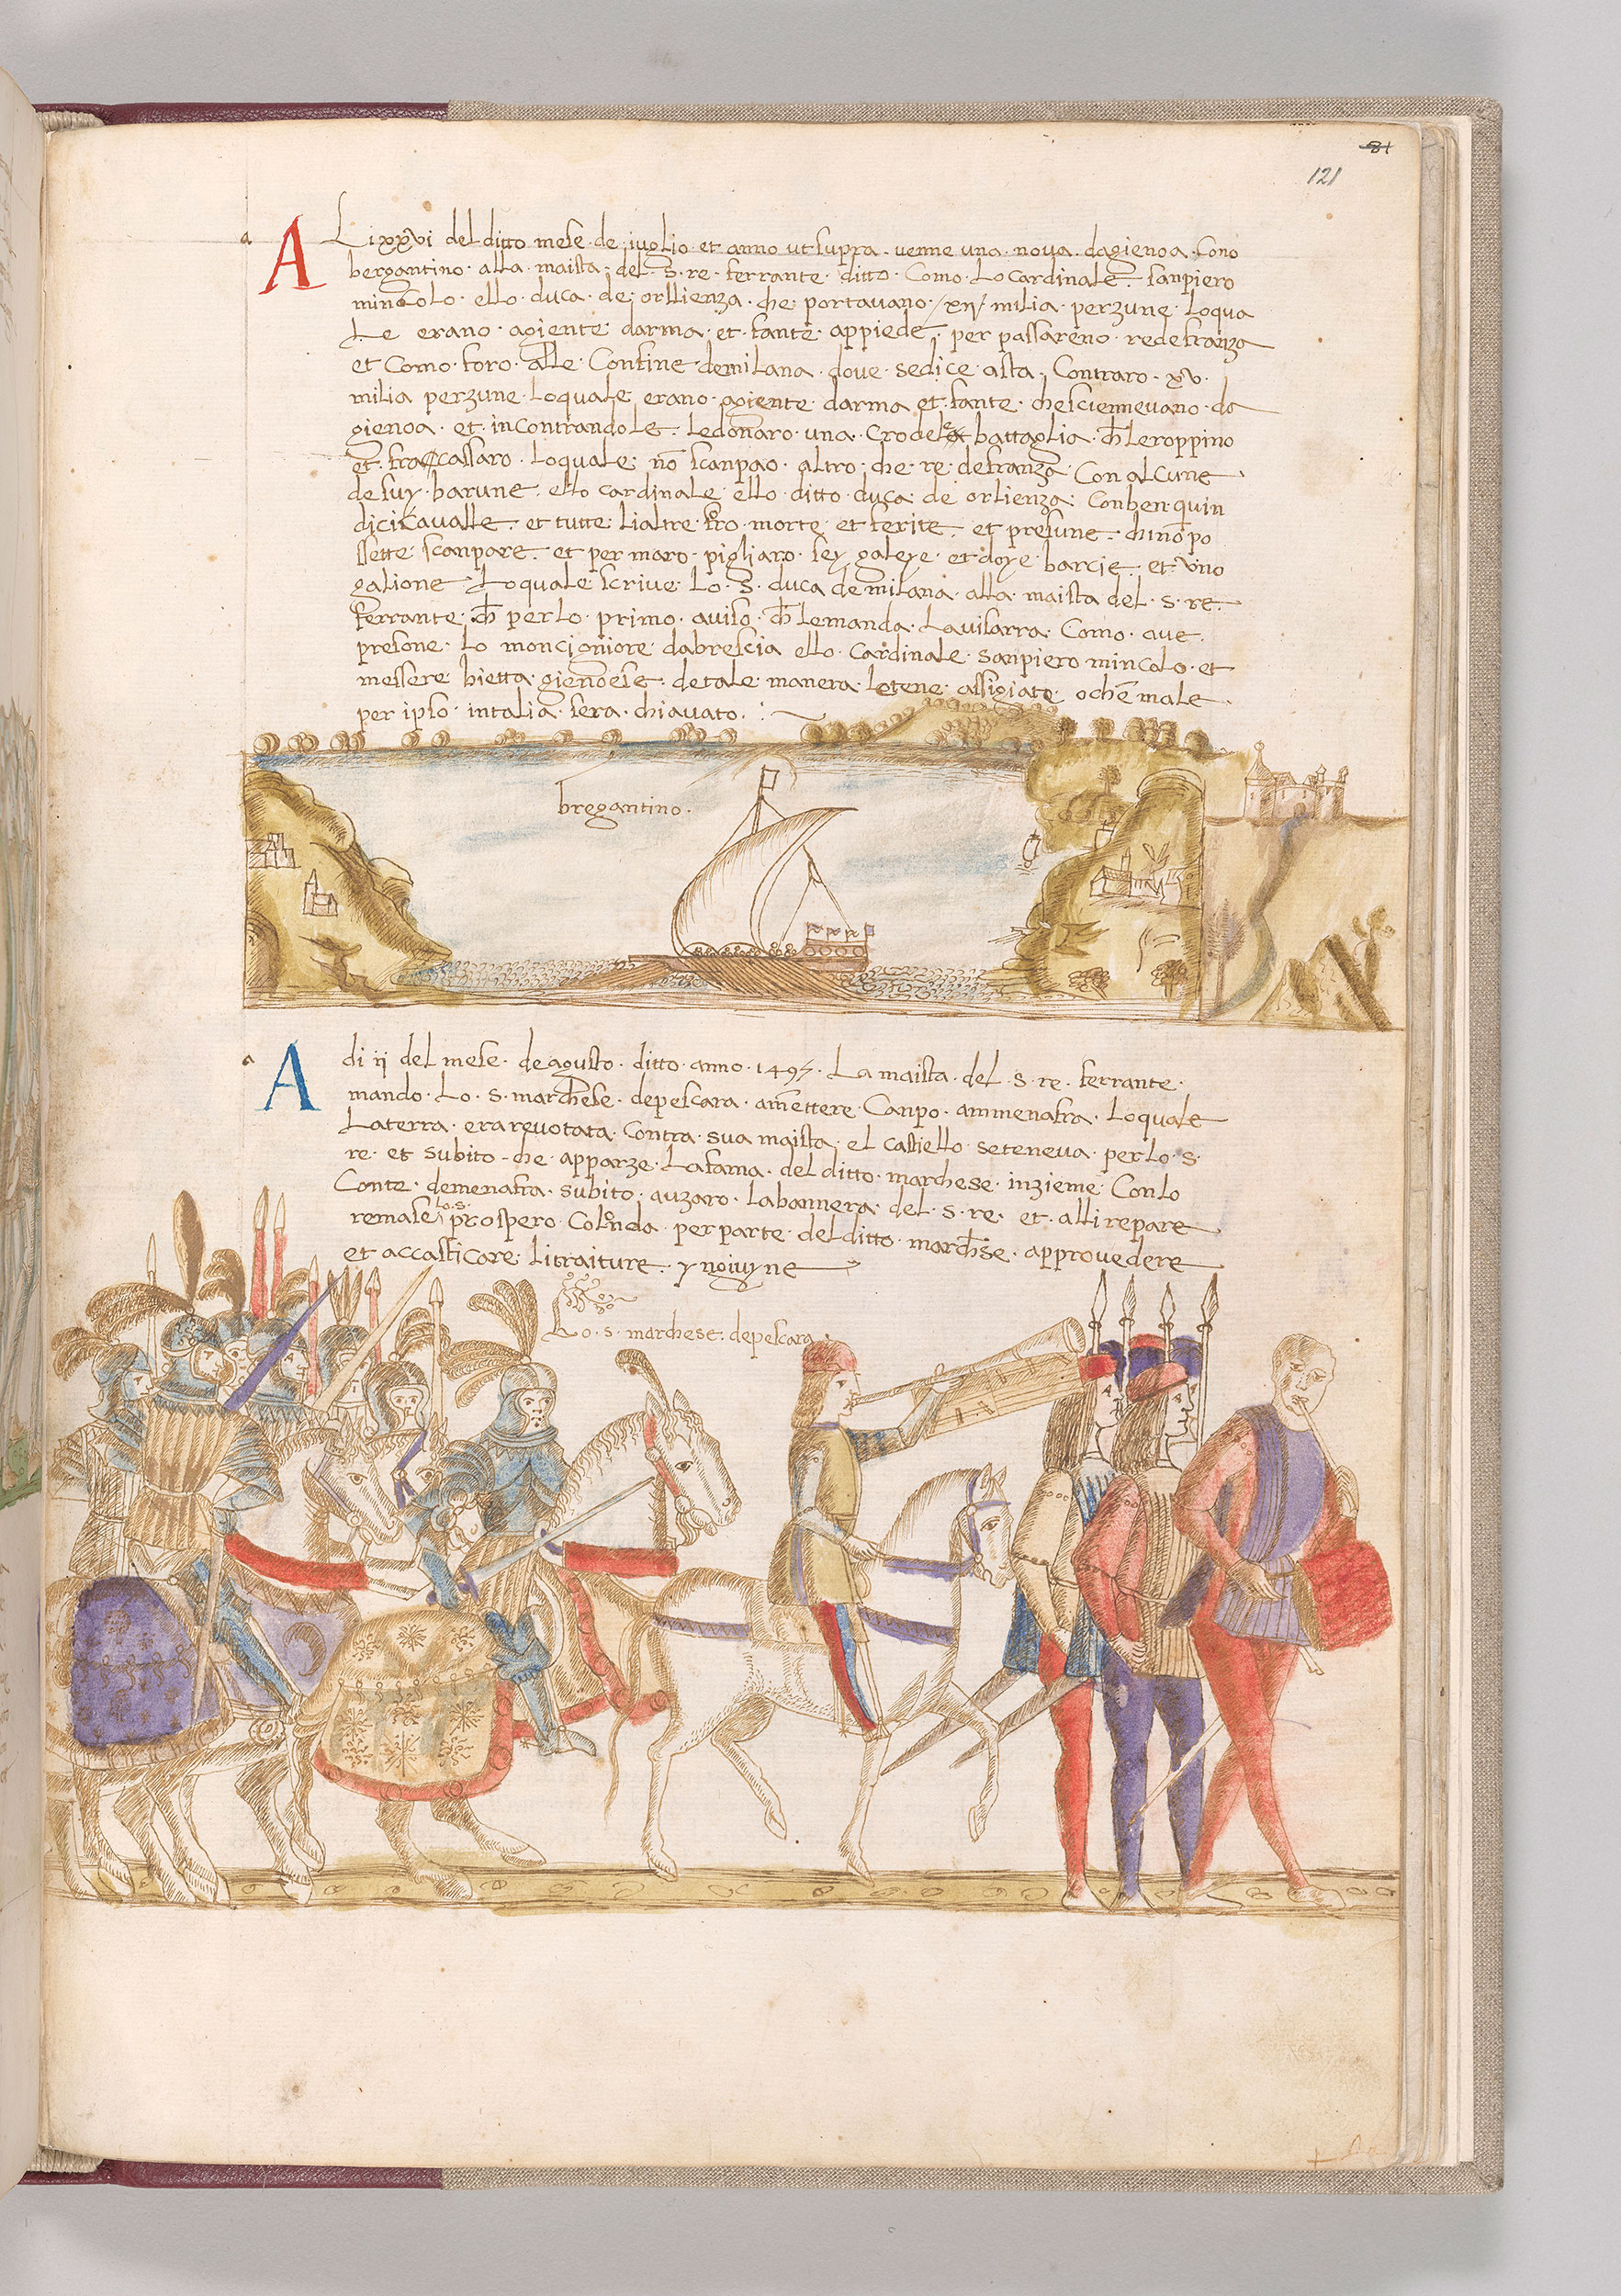 81
121
a
A Li xxvi del ditto mese · de · iuglio · et anno ut supra · venne una · nova · dagienoa · cono
bergantino · alla · maista · del · S · re · ferrante · ditto · Como · Lo cardinale · sanpiero
mincolo · ello · duca · de · orllienza · che · portavano · /xii/ · milia · perzune · loqua
Le · erano · agiente · darma · et · fante · appiede · per passareno · re de franza
et Como · foro · alle · Confine · demilana · dove · sedice · asta · Contraro · xv ·
milia perzune · loquale · erano · agiente · darma et · fante · chesciennevano · da
gienoa · et · incontrandole · ledonnaro · una · Crodele battaglia · ch̄ leroppino
et · fracassaro · loquale · nō scanpao · altro · che · re · de franza Con alcune ·
de suy · barune · ello cardinale · ello · ditto · duca · de orlienza · Conben · quin
dici kavalle · et tutte · lialtre · foro · morte · et ferite · et presune · chinō po
ssette · scanpare · et per maro · pigliaro · sey galeye · et doye · barcie · et · uno
galione · Loquale scrive · Lo · S · duca de milana · alla · maista del · s · re ·
ferrante · ch̄ per lo · primo · aviso · ch̄ lemanda · Lavisarra · Como · ave ·
presone · Lo moncigniore dabrescia ello · Cardinale · sanpiero mincolo · et
messere hietta · gienoese · detale · manera · letene · assigiate · ochē male ·
per ipso · intalia · sera · chiavato · :~
bregantino ·
a
A di ii del mese · de agusto · ditto · anno · 1495 · La maista · del · s · re · ferrante ·
mando · Lo · S · marchese · depescara · amettere Canpo · ammenafra · loquale
Laterra · era revotata · Contra · sua maista · el castiello · seteneva · perlo · s ·
re · et subito · che · apparze · Lafama · del ditto · marchese · inzieme · Con lo
Conte · demenafra · subito · auzaro · labannera · del · s · re · et · alli repare
remase lo · s · prospero · Colonda · per parte · del ditto · marchese · approvedere
et accasticare · li traiture · y noivyne
Lo · s · marchese · depescara ·